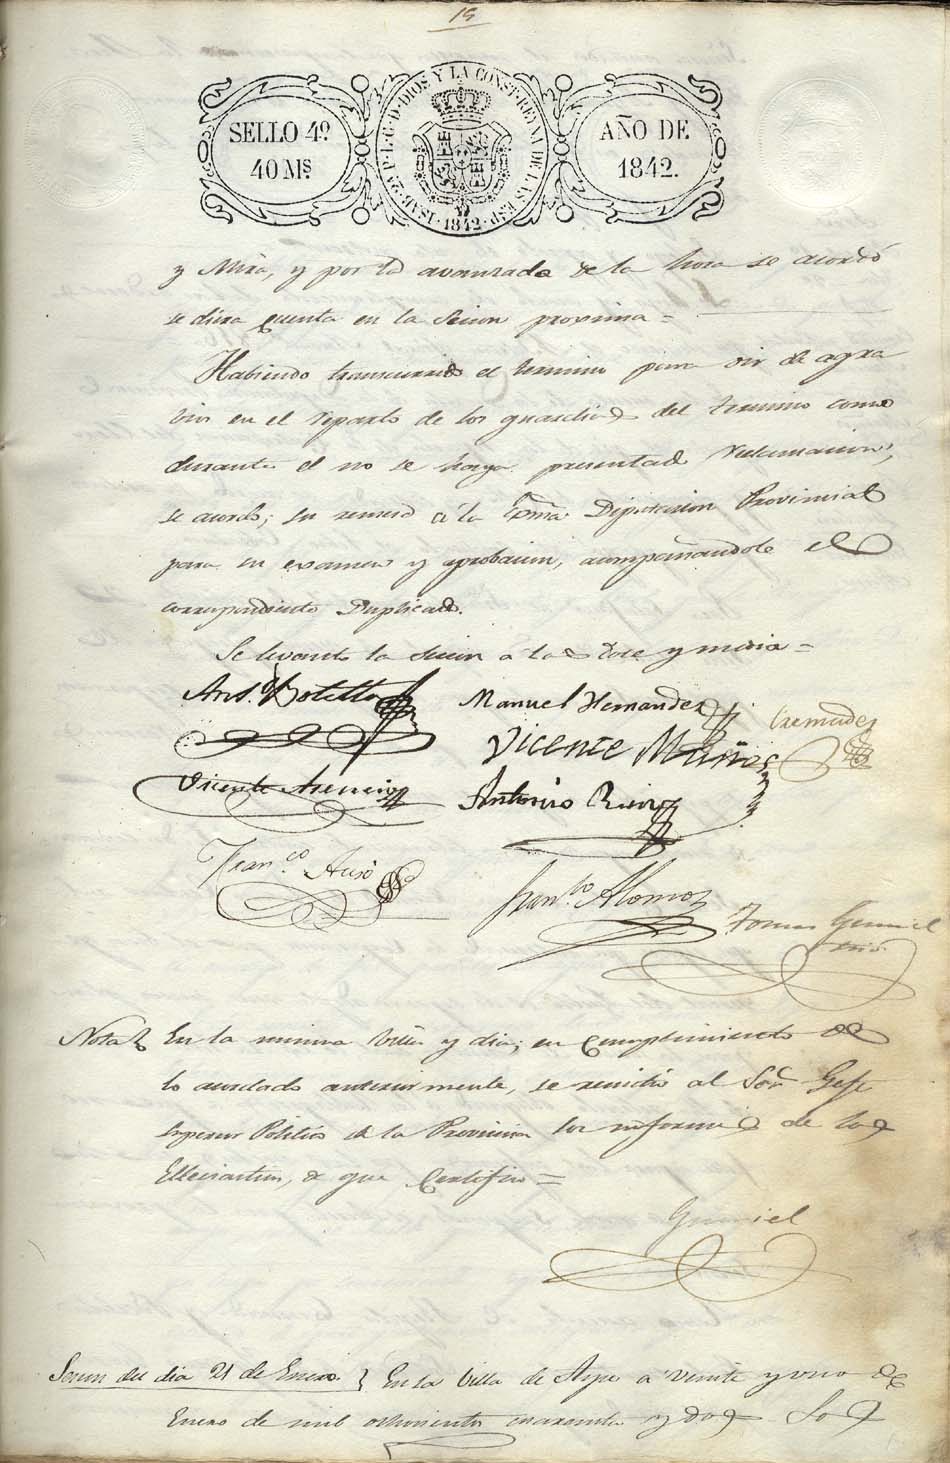 19
SELLO 4º
40 Mˢ
ISAB. 2ª P. L. G. D. DIOS Y LA CONST. REYNA DE LAS ESP.
1842
AÑO DE
1842.
y Mira, y por lo avanzada de la hora se acordó
se diera cuenta en la secion proxima =
Habiendo transcurrido el termino para oir de agra
vios en el reparto de los guardias del termino como
durante el no se haya presentado reclamacion,
se acordó; su remisió á la Exma Diputacion Provincial
para su examen y aprobacion, acompañandole el
correspondiente Duplicado.
Se levantó la secion á las doce y media =
Antº Botella
Manuel Hernandez
Cremades
Vicente Muños
Vicente Asencio
Antonio
Franco
Franco Alonso
Tomas Gumiel
Nota
En la misma Villa y dia; en cumplimiento de
lo acordado anteriormente, se remitió al Sor Gefe
Superior Politico de la Provincia los informes de los
de que Certifico =
Gumiel
Secion del dia 21 de Enero
En la Villa de Aspe a veinte y uno de
Enero de mil ochocientos cuarenta y dos Los